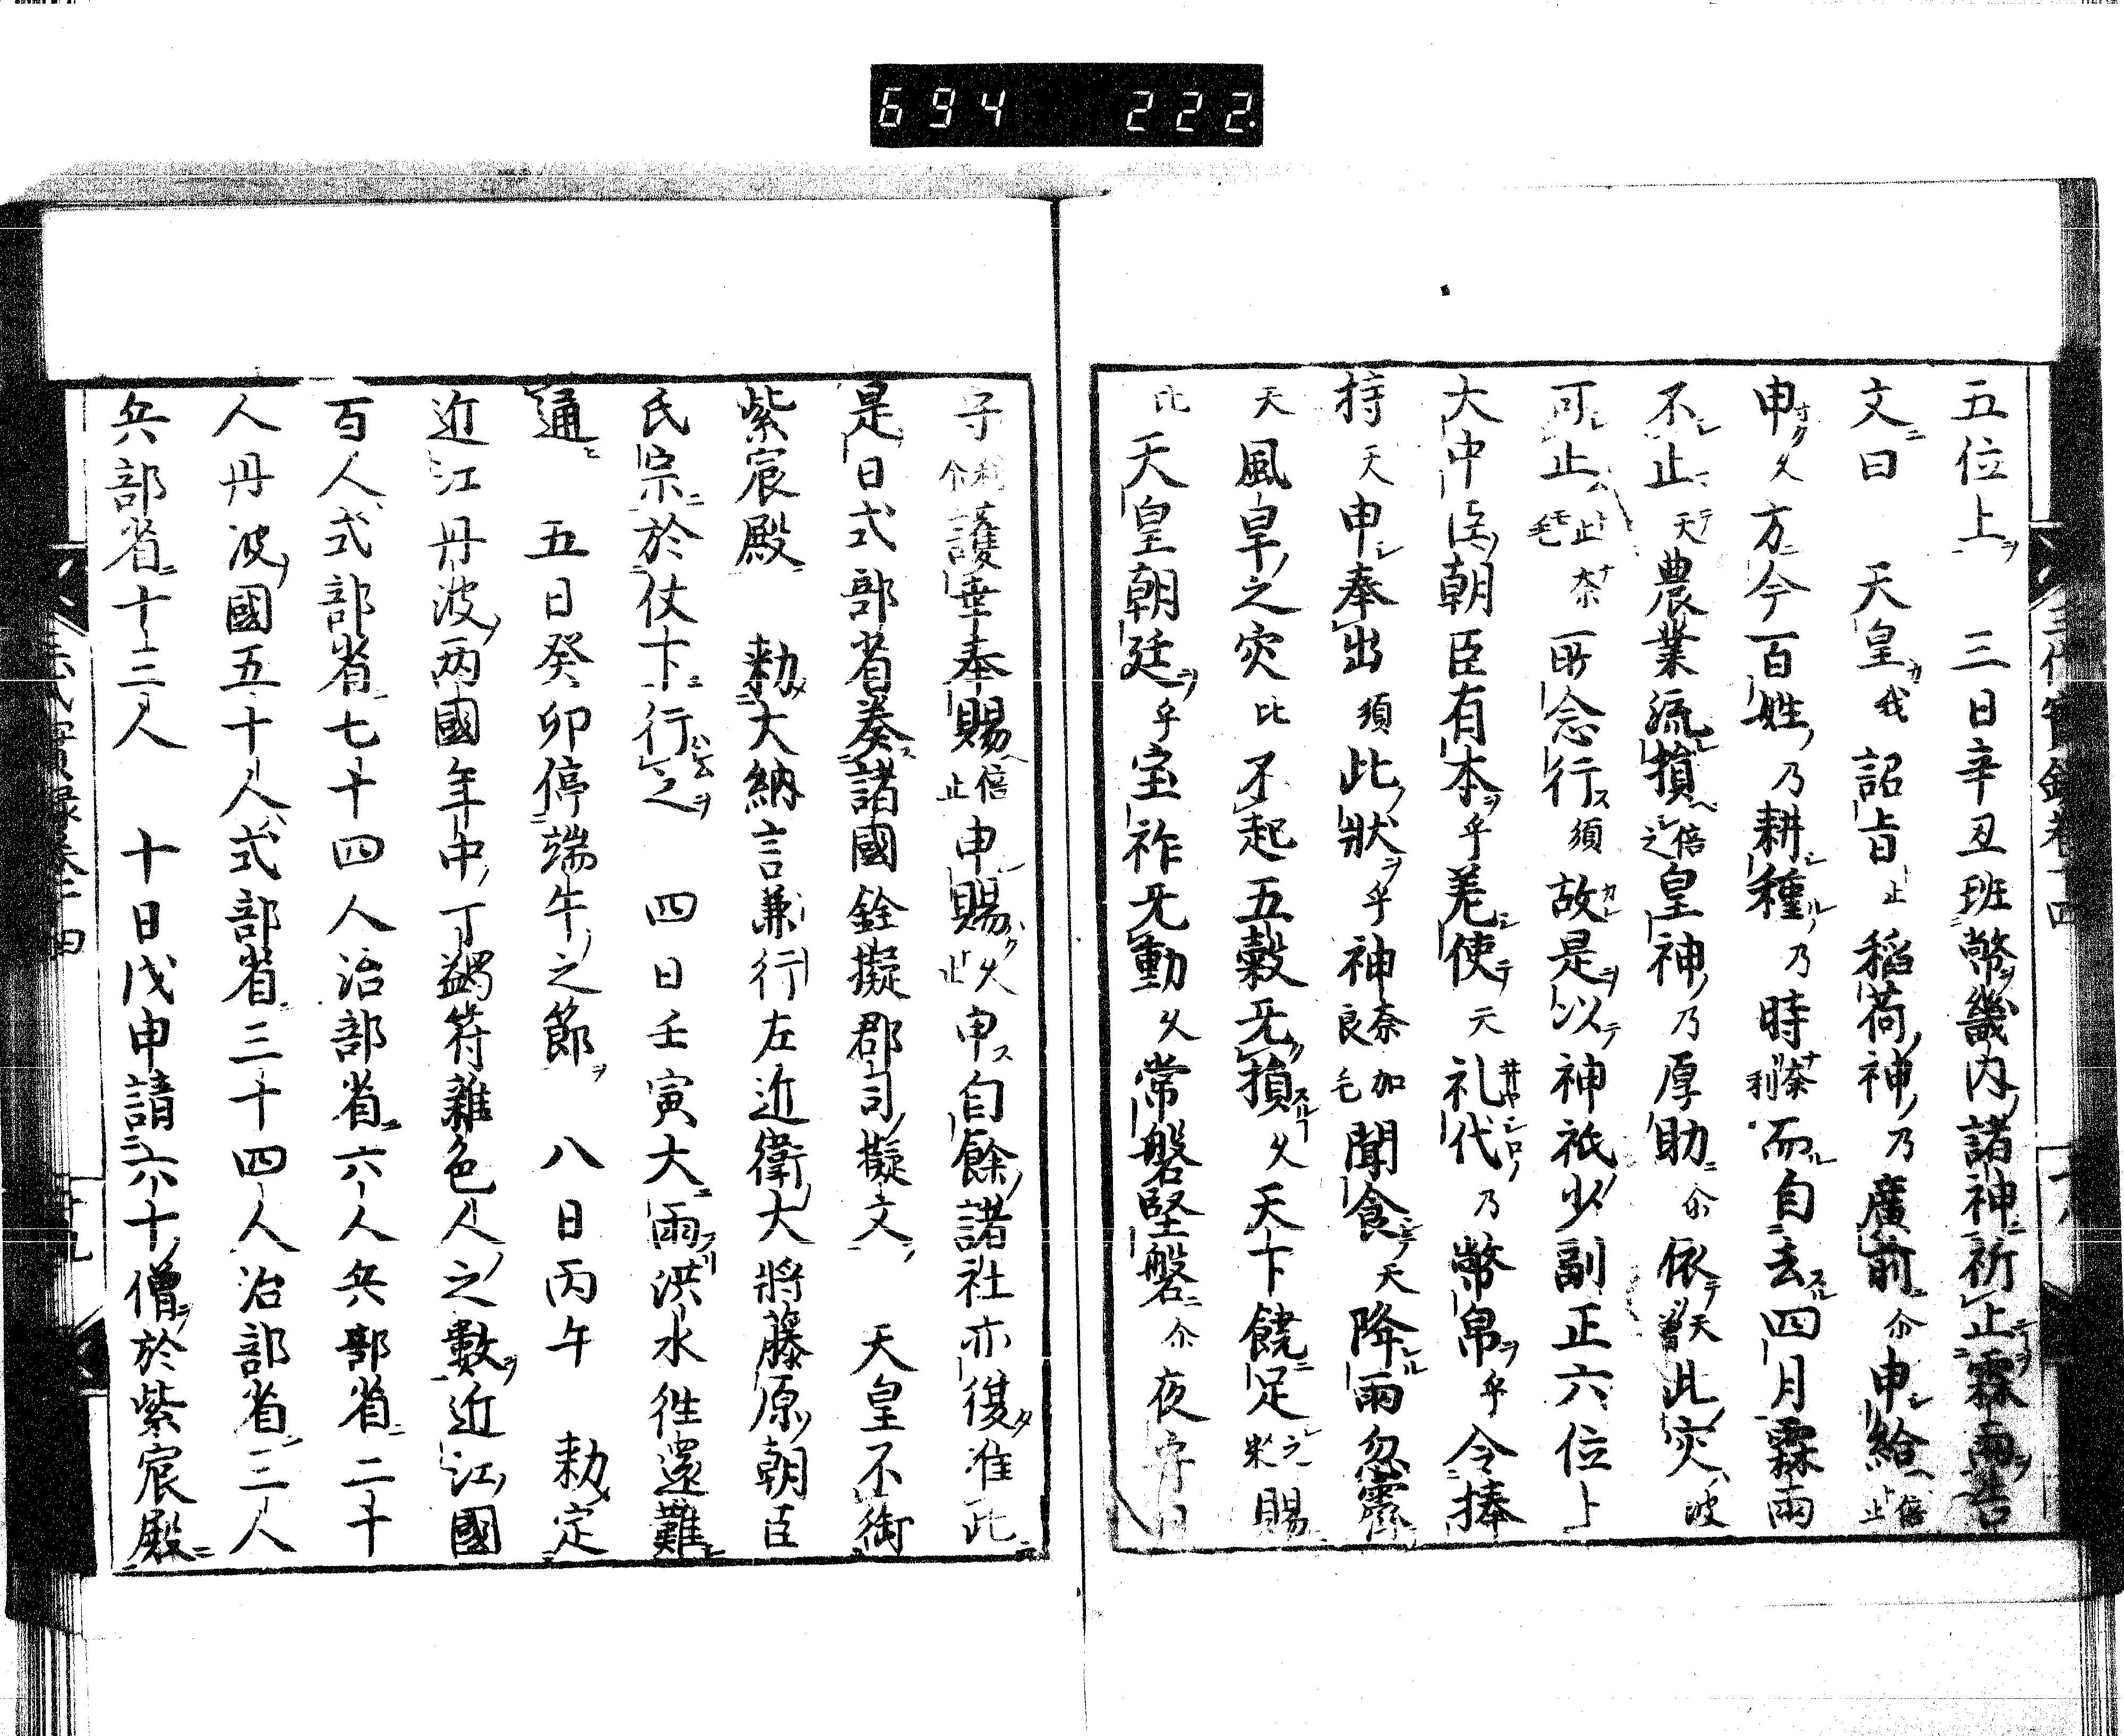 694 222
五位上 三日辛丑班幣畿内諸神祈止霖雨告
文曰 天皇我詔旨止稻荷神乃廣前尒申給倍止
申久方今百姓乃耕種乃時奈利而自去四月霖雨
不止天農業流損倍之皇神乃厚助尒依天此灾波
可止止毛奈所念行須故是以神祇少副正六位上
大中臣朝臣有本乎差使天礼代乃幣帛乎令捧
持天申奉出須此狀乎神奈良毛加聞食天降雨忽霽
天風旱之灾比不起五穀旡損久天下饒足之米賜
比天皇朝廷乎宝祚旡動久常磐堅磐尒夜守日
守利尒護奉賜倍止申賜久止申自餘諸社亦復准此
是日式部省奏諸國銓擬郡司擬文 天皇不御
紫宸殿 勅大納言兼行左近衛大將藤原朝臣
氏宗於仗下行之 四日壬寅大雨洪水徃還難
通 五日癸卯停端午之節 八日丙午 勅定
近江丹波两國年中丁蠲符雜色人之數近江國
百人式部省七十四人治部省六人兵部省二十
人丹波國五十人式部省三十四人治部省三人
兵部省十三人 十日戊申請六十僧於紫宸殿